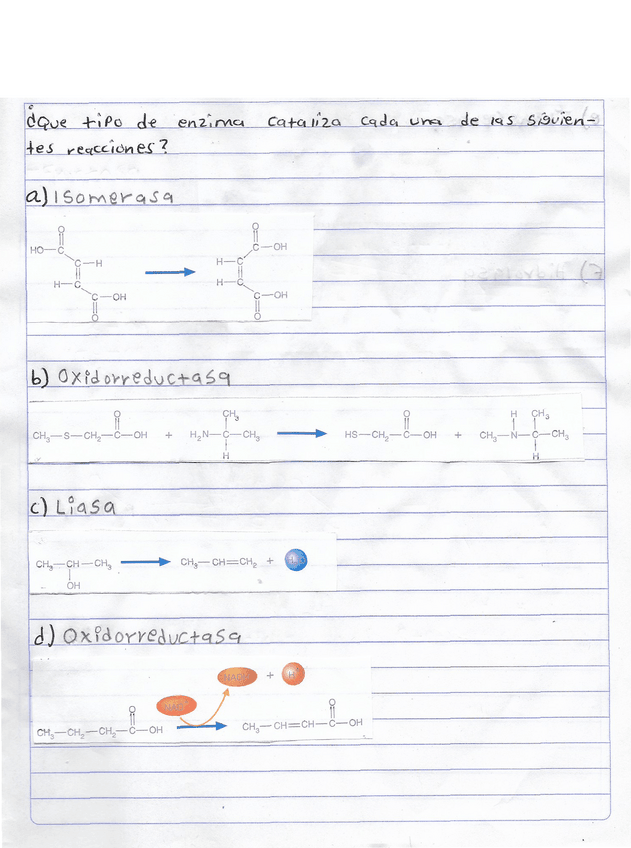 ¿Que tipo de enzima cataliza cada una de las siguien-
tes reacciones?
a) Isomerasa
O
HO—C C—H
H—C C—OH
O
O
C—OH
H—C
H—C
C—OH
O
b) Oxidorreductasa
CH₃—S—CH₂—C—OH + H₂N—C—CH₃ HS—CH₂—C—OH + CH₃—N—C—CH₃
O CH₃ H O H CH₃ H
c) Liasa
CH₃—CH—CH₃ CH₃—CH=CH₂ +
OH
d) Oxidorreductasa
+ H
O O
CH₃—CH₂—CH₂—C—OH CH₃—CH=CH—C—OH